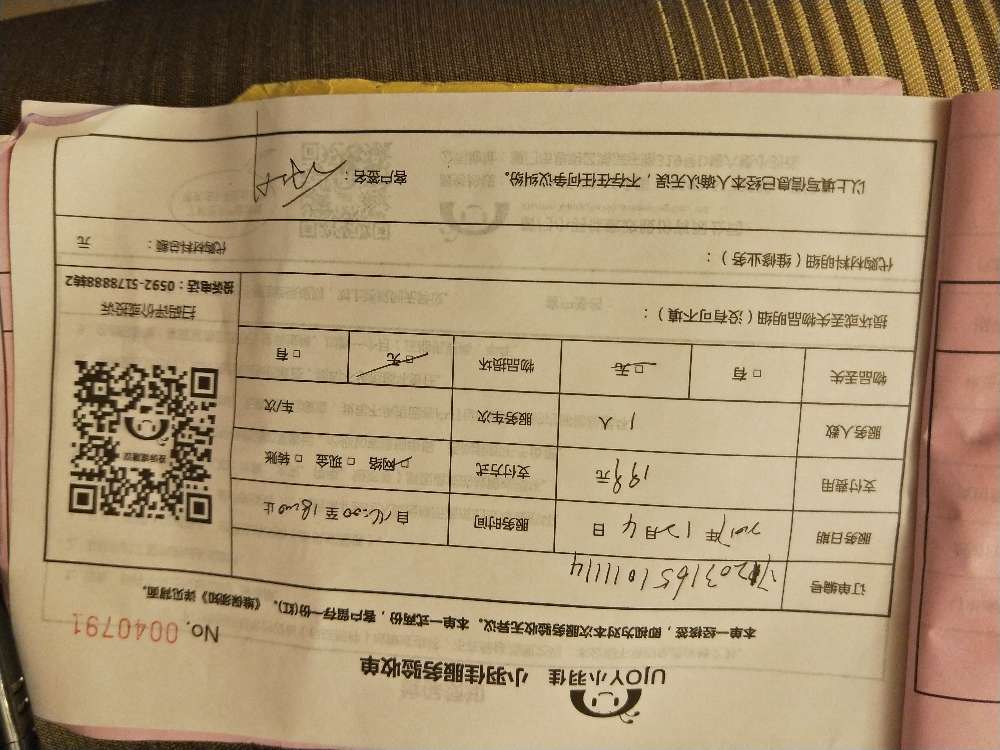 UJOY小羽佳 小羽佳服务验收单
No. 0040791
本单一经接签，即视为对本次服务验收无异议。本单一式两份，客户留存一份(红)。《维保须知》详见背面。
订单编号
服务日期 2017年12月4日 服务时间 自14:00至18:00止
支付费用 199元 支付方式 □网络 □现金 □转账
服务人数 1人 服务车次 车/次
物品丢失 □有 □无 物品损坏 □无 □有
投诉建议
扫码评价或投诉
投诉电话：0592-5178888转2
损坏或丢失物品明细（没有可不填）：
代购材料明细（维修业务）： 代购材料总额： 元
以上填写信息已经本人确认无误，不存在任何争议纠纷。 客户签名：